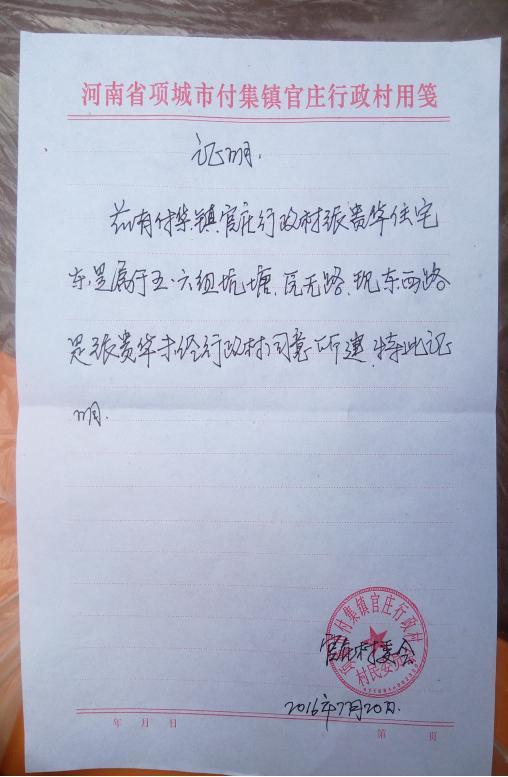 河南省项城市付集镇官庄行政村用笺
证明.
兹有付集镇官庄行政村张贵华住宅
东,是属于五.六组坑塘.既无路.现东西路
是张贵华未经行政村同意所建.特此证
明.
付集镇官庄行政村
村民委员会
官庄村委会
2016年7月20日.
年 月 日
第 页